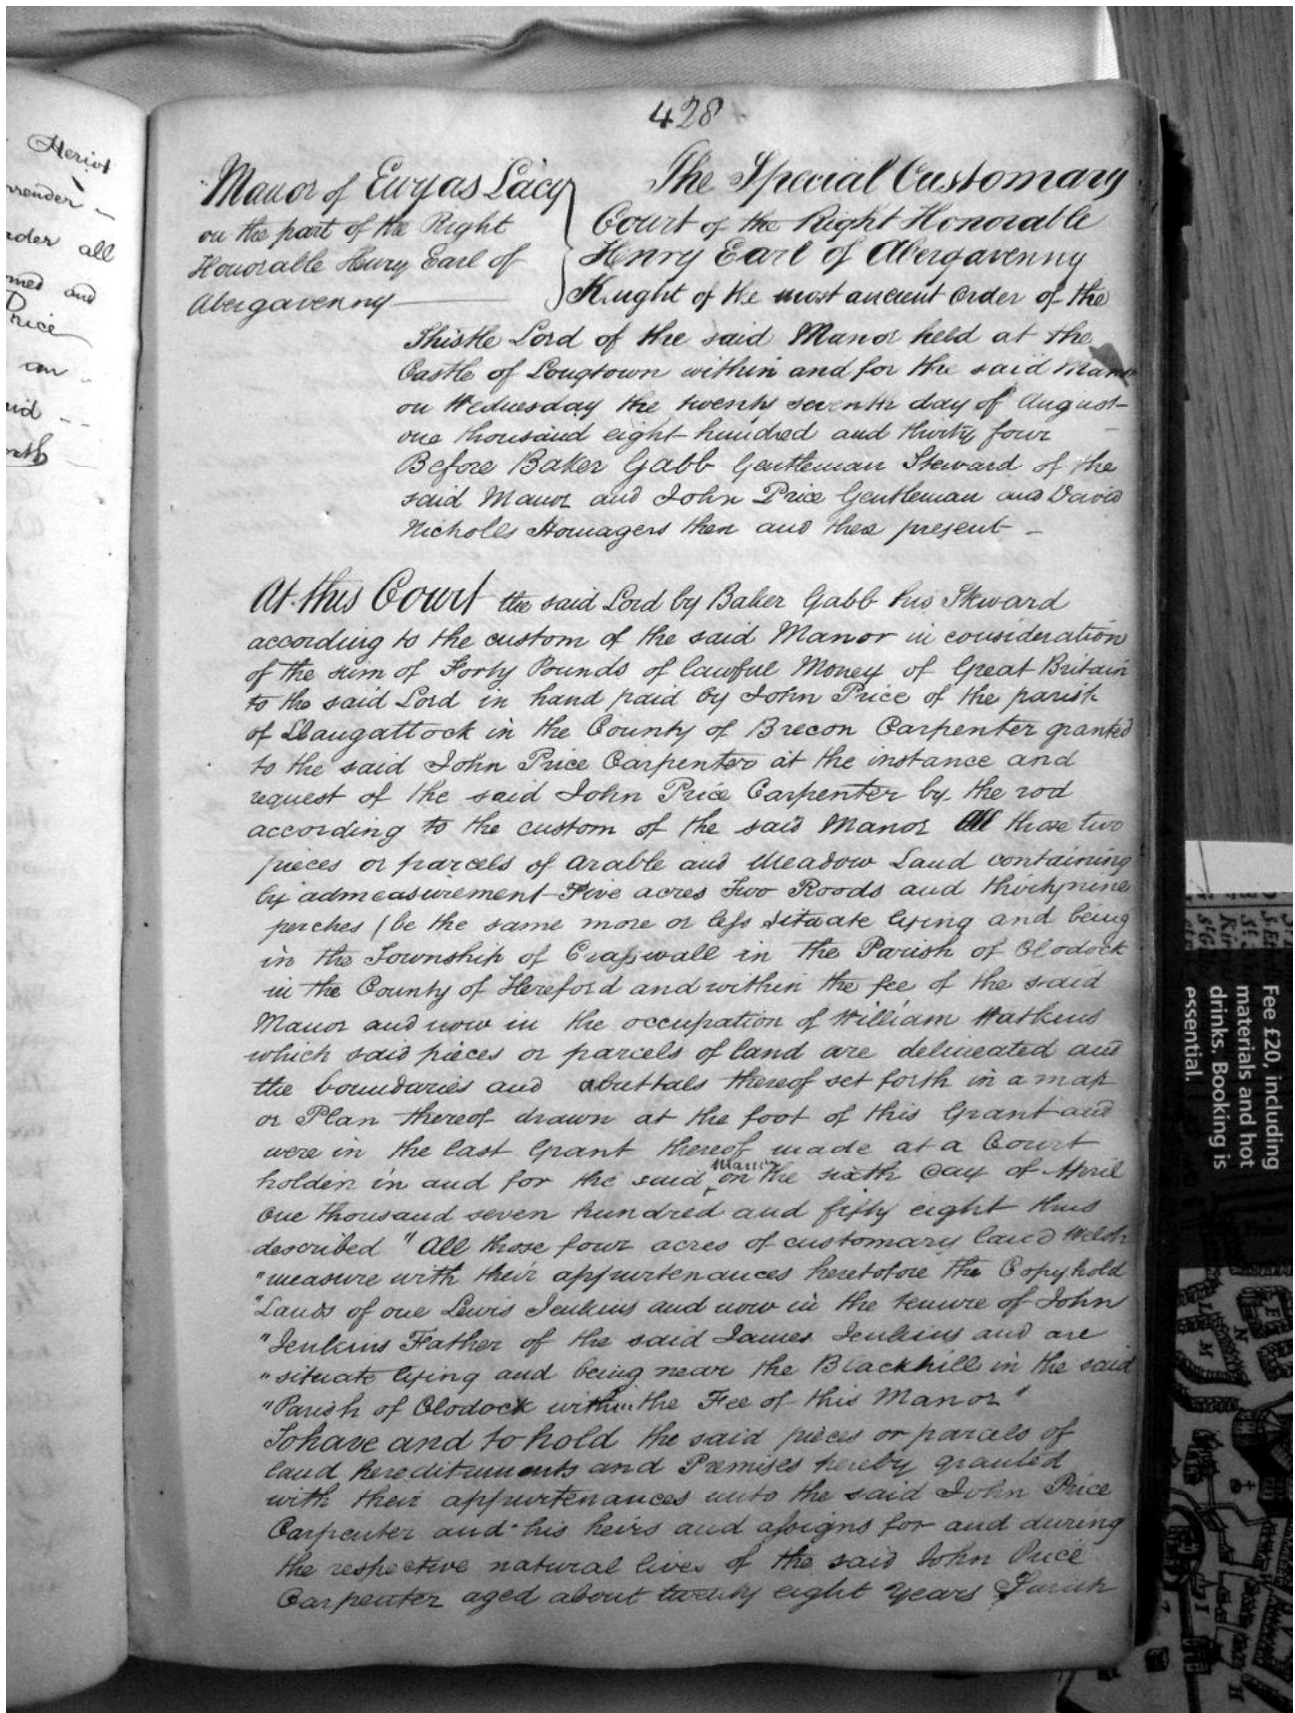 428
Manor of Ewyas Lacy
on the part of the Right
Honorable Henry Earl of
Abergavenny
The Special Customary
Court of the Right Honorable
Henry Earl of Abergavenny
Knight of the most ancient Order of the
Thistle Lord of the said Manor held at the
Castle of Longtown within and for the said Manor
on Wednesday the twenty seventh day of August
one thousand eight hundred and thirty four
Before Baker Gabb Gentleman Steward of the
said Manor and John Price Gentleman and David
Nicholls Homagers then and there present
At this Court the said Lord by Baker Gabb his Steward
according to the custom of the said Manor in consideration
of the sum of Forty Pounds of lawful Money of Great Britain
to the said Lord in hand paid by John Price of the parish
of Llangattock in the County of Brecon Carpenter granted
to the said John Price Carpenter at the instance and
request of the said John Price Carpenter by the rod
according to the custom of the said Manor All those two
pieces or parcels of arable and Meadow Land containing
by admeasurement Five acres Two Roods and thirtynine
perches (be the same more or less situate lying and being
in the Township of Crasswall in the Parish of Clodock
in the County of Hereford and within the fee of the said
Manor and now in the occupation of William Watkins
which said pieces or parcels of land are delineated and
the boundaries and abuttals thereof set forth in a map
or Plan thereof drawn at the foot of this Grant and
were in the last Grant thereof made at a Court
holden in and for the said Manor on the sixth day of April
One thousand seven hundred and fifty eight thus
described "All those four acres of customary land Welsh
"measure with their appurtenances heretofore the Copyhold
"Lands of one Lewis Jenkins and now in the tenure of John
"Jenkins Father of the said James Jenkins and are
"situate lying and being near the Blackhill in the said
"Parish of Clodock within the Fee of this Manor"
To have and to hold the said pieces or parcels of
land hereditaments and Premises hereby granted
with their appurtenances unto the said John Price
Carpenter and his heirs and assigns for and during
the respective natural lives of the said John Price
Carpenter aged about twenty eight years
Heriot
all
and
Price
Fee £20, including
materials and hot
drinks. Booking is
essential.